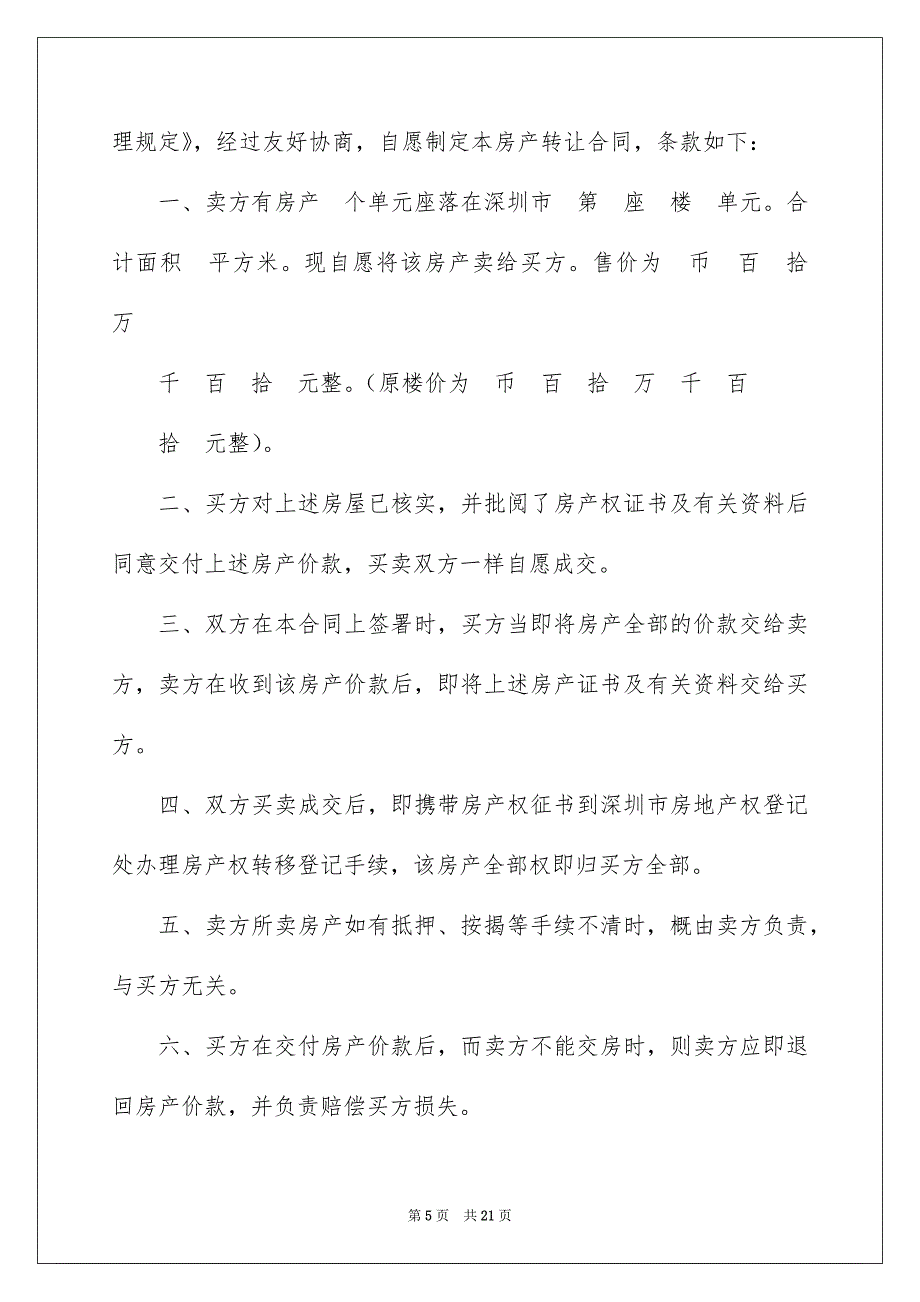 理规定》，经过友好协商，自愿制定本房产转让合同，条款如下：
一、卖方有房产　个单元座落在深圳市　第　座　楼　单元。合
计面积　平方米。现自愿将该房产卖给买方。售价为　币　百　拾
万
千　百　拾　元整。（原楼价为　币　百　拾　万　千　百
拾　元整）。
二、买方对上述房屋已核实，并批阅了房产权证书及有关资料后
同意交付上述房产价款，买卖双方一样自愿成交。
三、双方在本合同上签署时，买方当即将房产全部的价款交给卖
方，卖方在收到该房产价款后，即将上述房产证书及有关资料交给买
方。
四、双方买卖成交后，即携带房产权征书到深圳市房地产权登记
处办理房产权转移登记手续，该房产全部权即归买方全部。
五、卖方所卖房产如有抵押、按揭等手续不清时，概由卖方负责，
与买方无关。
六、买方在交付房产价款后，而卖方不能交房时，则卖方应即退
回房产价款，并负责赔偿买方损失。
第 5 页　共 21 页